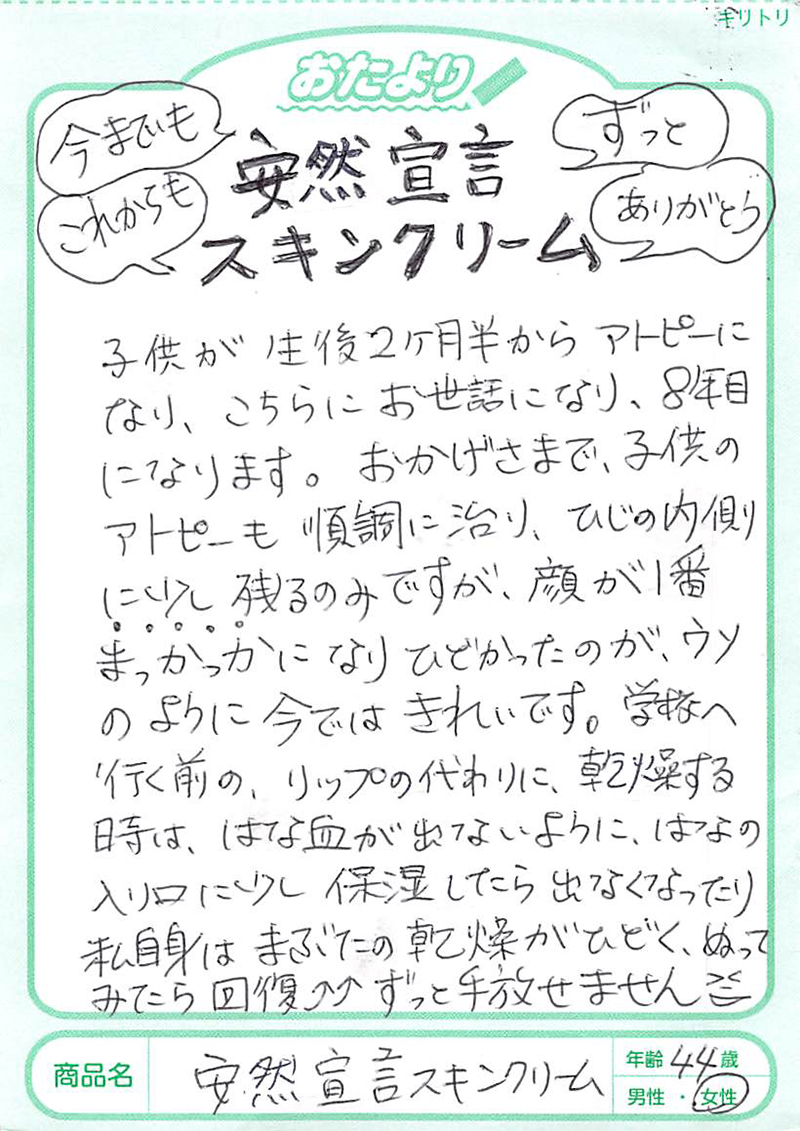 キリトリ
おたより
今までも
これからも
ずっと
ありがとう
安然宣言
スキンクリーム
子供が生後2ケ月半からアトピーに
なり、こちらにお世話になり、8年目
になります。おかげさまで、子供の
アトピーも順調に治り、ひじの内側
に少し残るのみですが、顔が1番
まっかっかになりひどかったのが、ウソ
のように今ではきれいです。学校へ
行く前の、リップの代わりに、乾燥する
時は、はな血が出てないように、はなの
入り口に少し保湿したら出なくなったり
私自身はまぶたの乾燥がひどく、ぬって
みたら回復↑↑ずっと手放せません
商品名 安然宣言スキンクリーム
年齢 44歳
男性・女性